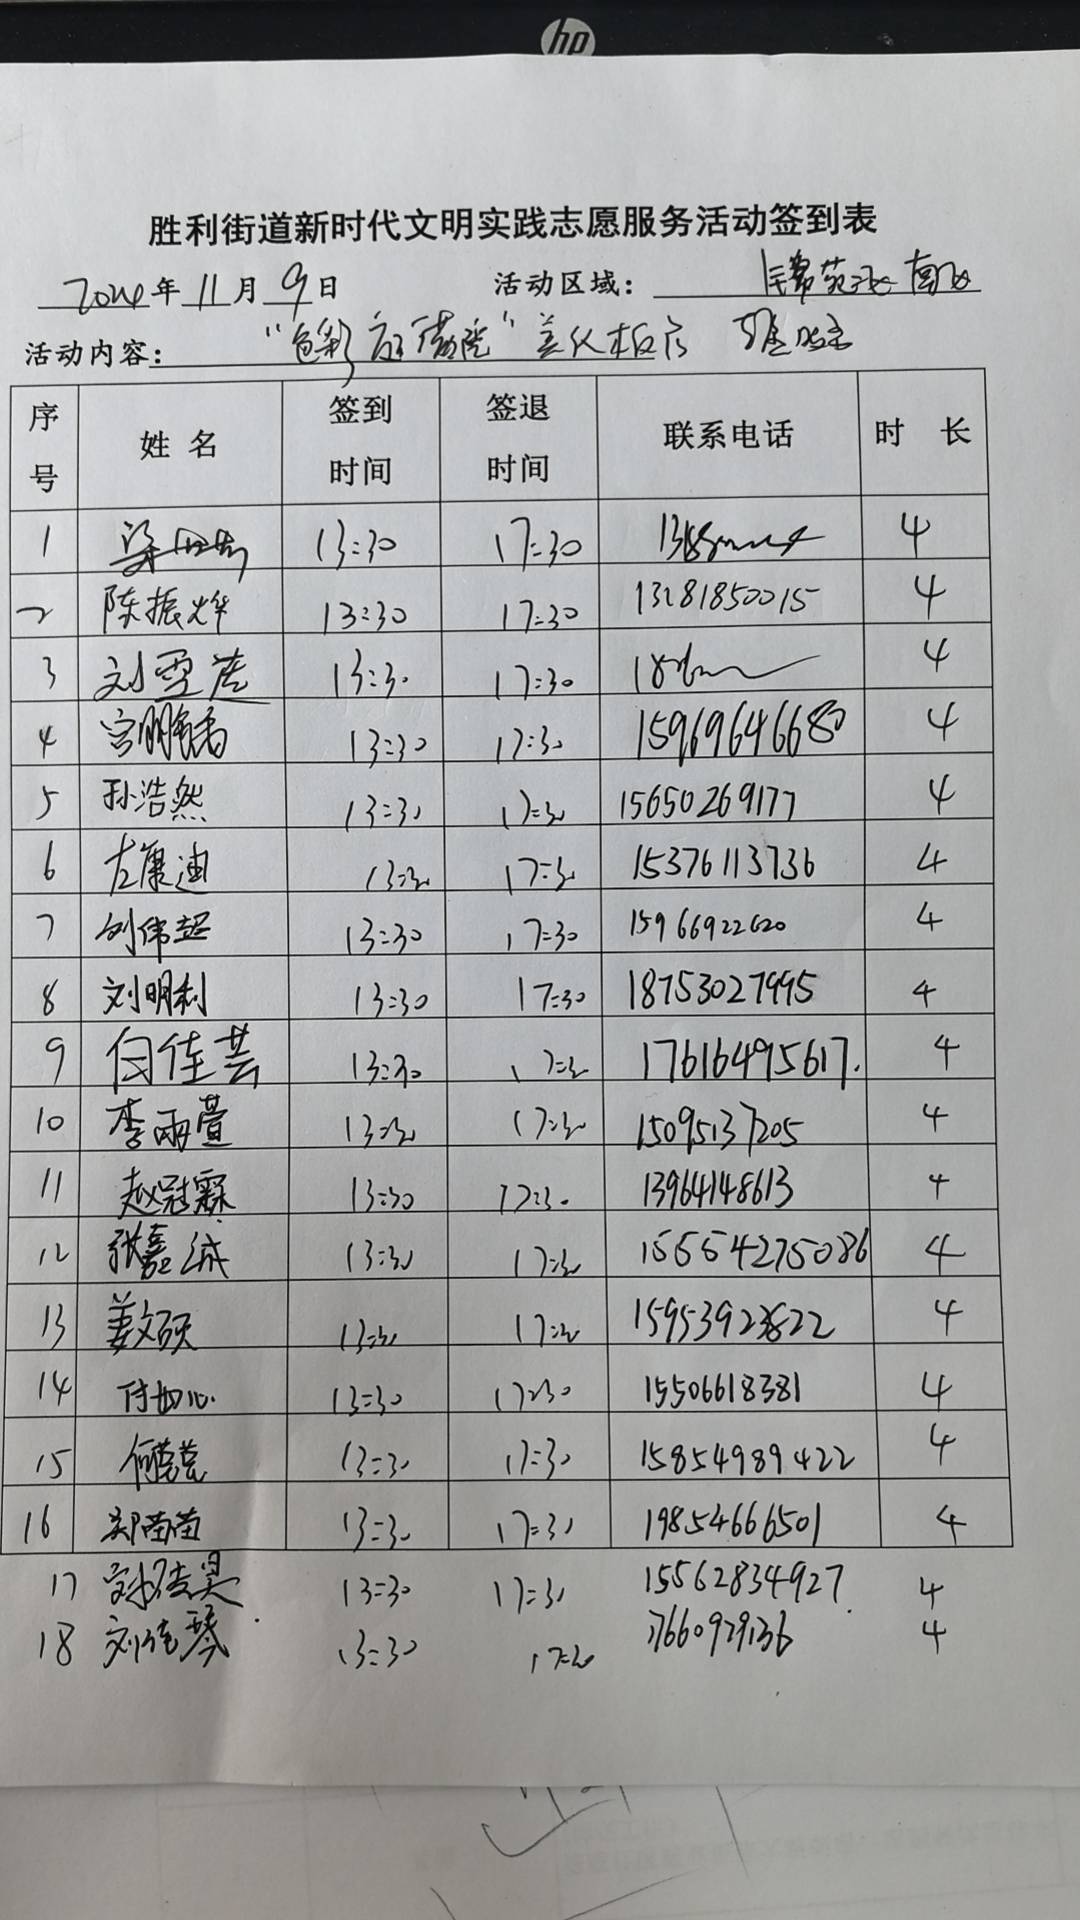 hp
胜利街道新时代文明实践志愿服务活动签到表
2024年11月9日 活动区域: 锦苑 南
活动内容: "色彩
序号 姓名 签到时间 签退时间 联系电话 时 长
1 13:30 17:30 4
2 陈振烨 13:30 17:30 13281850015 4
3 刘雪莲 13:30 17:30 4
4 宫明 13:30 17:30 15969646680 4
5 孙浩然 13:30 17:30 15650269177 4
6 左康迪 13:30 17:30 15376113736 4
7 刘伟超 13:30 17:30 15966922620 4
8 刘明利 13:30 17:30 18753027995 4
9 闫佳芸 13:30 17:30 17616495617. 4
10 李雨萱 13:30 17:30 15095137205 4
11 赵冠霖 13:30 17:30 13964148613 4
12 张嘉诚 13:30 17:30 15554275086 4
13 姜文硕 13:30 17:30 15953923822 4
14 付 心 13:30 17:30 15506618381 4
15 何 13:30 17:30 15854989422 4
16 郑苗苗 13:30 17:30 19854666501 4
17 昊 13:30 17:30 15562834927. 4
18 刘佳琴 13:30 17:30 17660929136 4